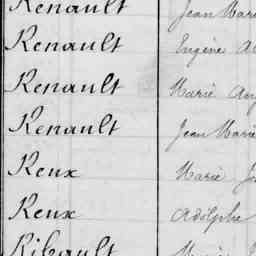 Renault Jean Marie
Renault Eugène
Renault Marie
Renault Jean Marie
Reux Marie
Reux Adolphe
Ribault